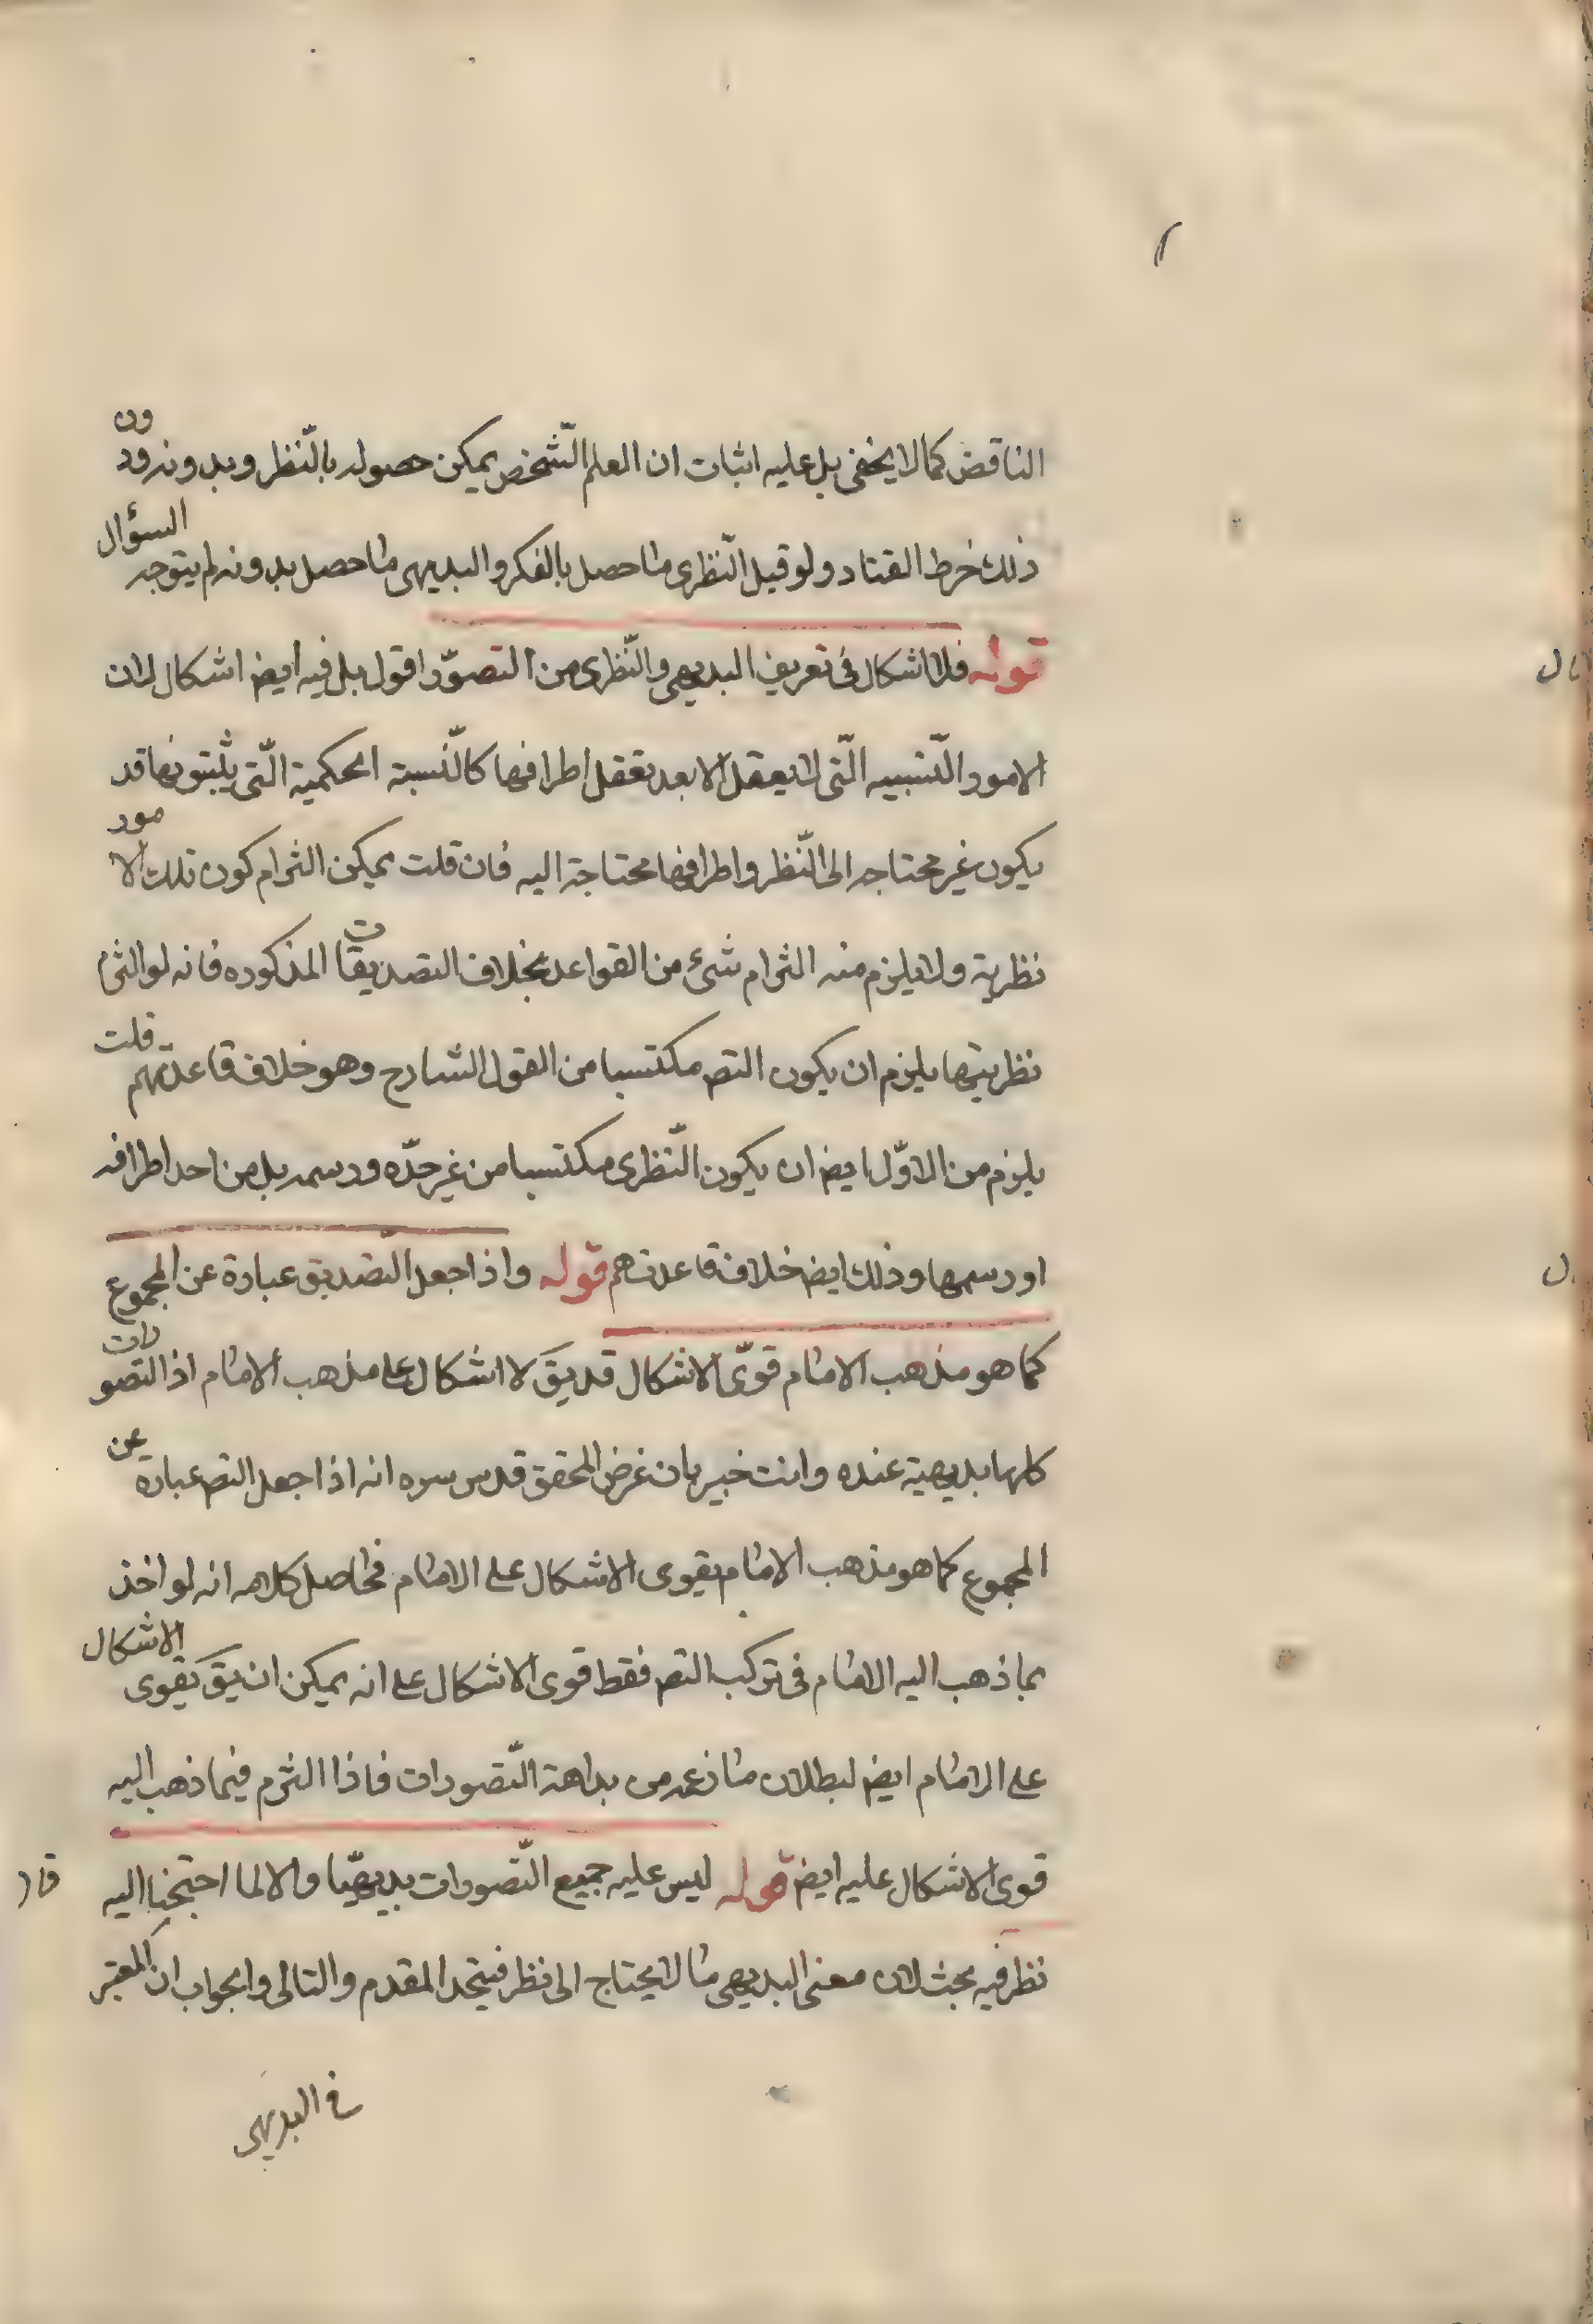 الناقض كما لا يخفى بل عليه اثبات ان العلم الشّخص يمكن حصوله بالنّظر وبدونه ودون
ذلك خرط القتاد ولو قيل النّظرى ما حصل بالفكر والبديهى ما حصل بدونه لم يتوجه السؤال
قوله فلا اشكال فى تعريف البديهى والنّظرى من التصوّر اقول بل فيه ايض اشكال لان
الامور النّسبيه الّتى لا يعقل الا بعد تعقل اطرافها كالنّسبة الحكمية الّتى يثبتونها قد
يكون غير محتاجه الى النّظر واطرافها محتاجة اليه فان قلت يمكن التزام كون تلك الامور
نظرية ولا يلزم منه التزام شئ من القواعد بخلاف التصديقات المذكوره فانه لو التزم
نظريتها يلزم ان يكون التص مكتسبا من القول الشارح وهو خلاف قاعدتهم قلت
يلزم من الاوّل ايض ان يكون النّظرى مكتسبا من غير حدّه ورسمه بل من احد اطرافه
او رسمها وذلك ايض خلاف قاعدتهم قوله واذا جعل التّصديق عبارة عن المجموع
كما هو مذهب الامام قوّى الاشكال قد يقَ لا اشكال على مذهب الامام اذ التصورات
كلها بديهية عنده وانت خبير بان غرض المحقق قدس سره انه اذا جعل التص عبارة عن
المجموع كما هو مذهب الامام يقوى الاشكال على الامام فحاصل كلامه انه لو اخذ
بما ذهب اليه الامام فى تركب التص فقط قوى الاشكال على انه يمكن ان يقَ يقوى الاشكال
على الامام ايض لبطلان ما زعمه من بداهة التّصورات فاذا التزم فيما ذهب اليه
قوى الاشكال عليه ايض قوله ليس عليه جميع التّصورات بديهيّا والا لما احتجنا اليه
نظر فيه بحث لان معنى البديهى ما لا يحتاج الى نظر فيتحد المقدم والتالى والجواب ان المعتبر
فى البديهى